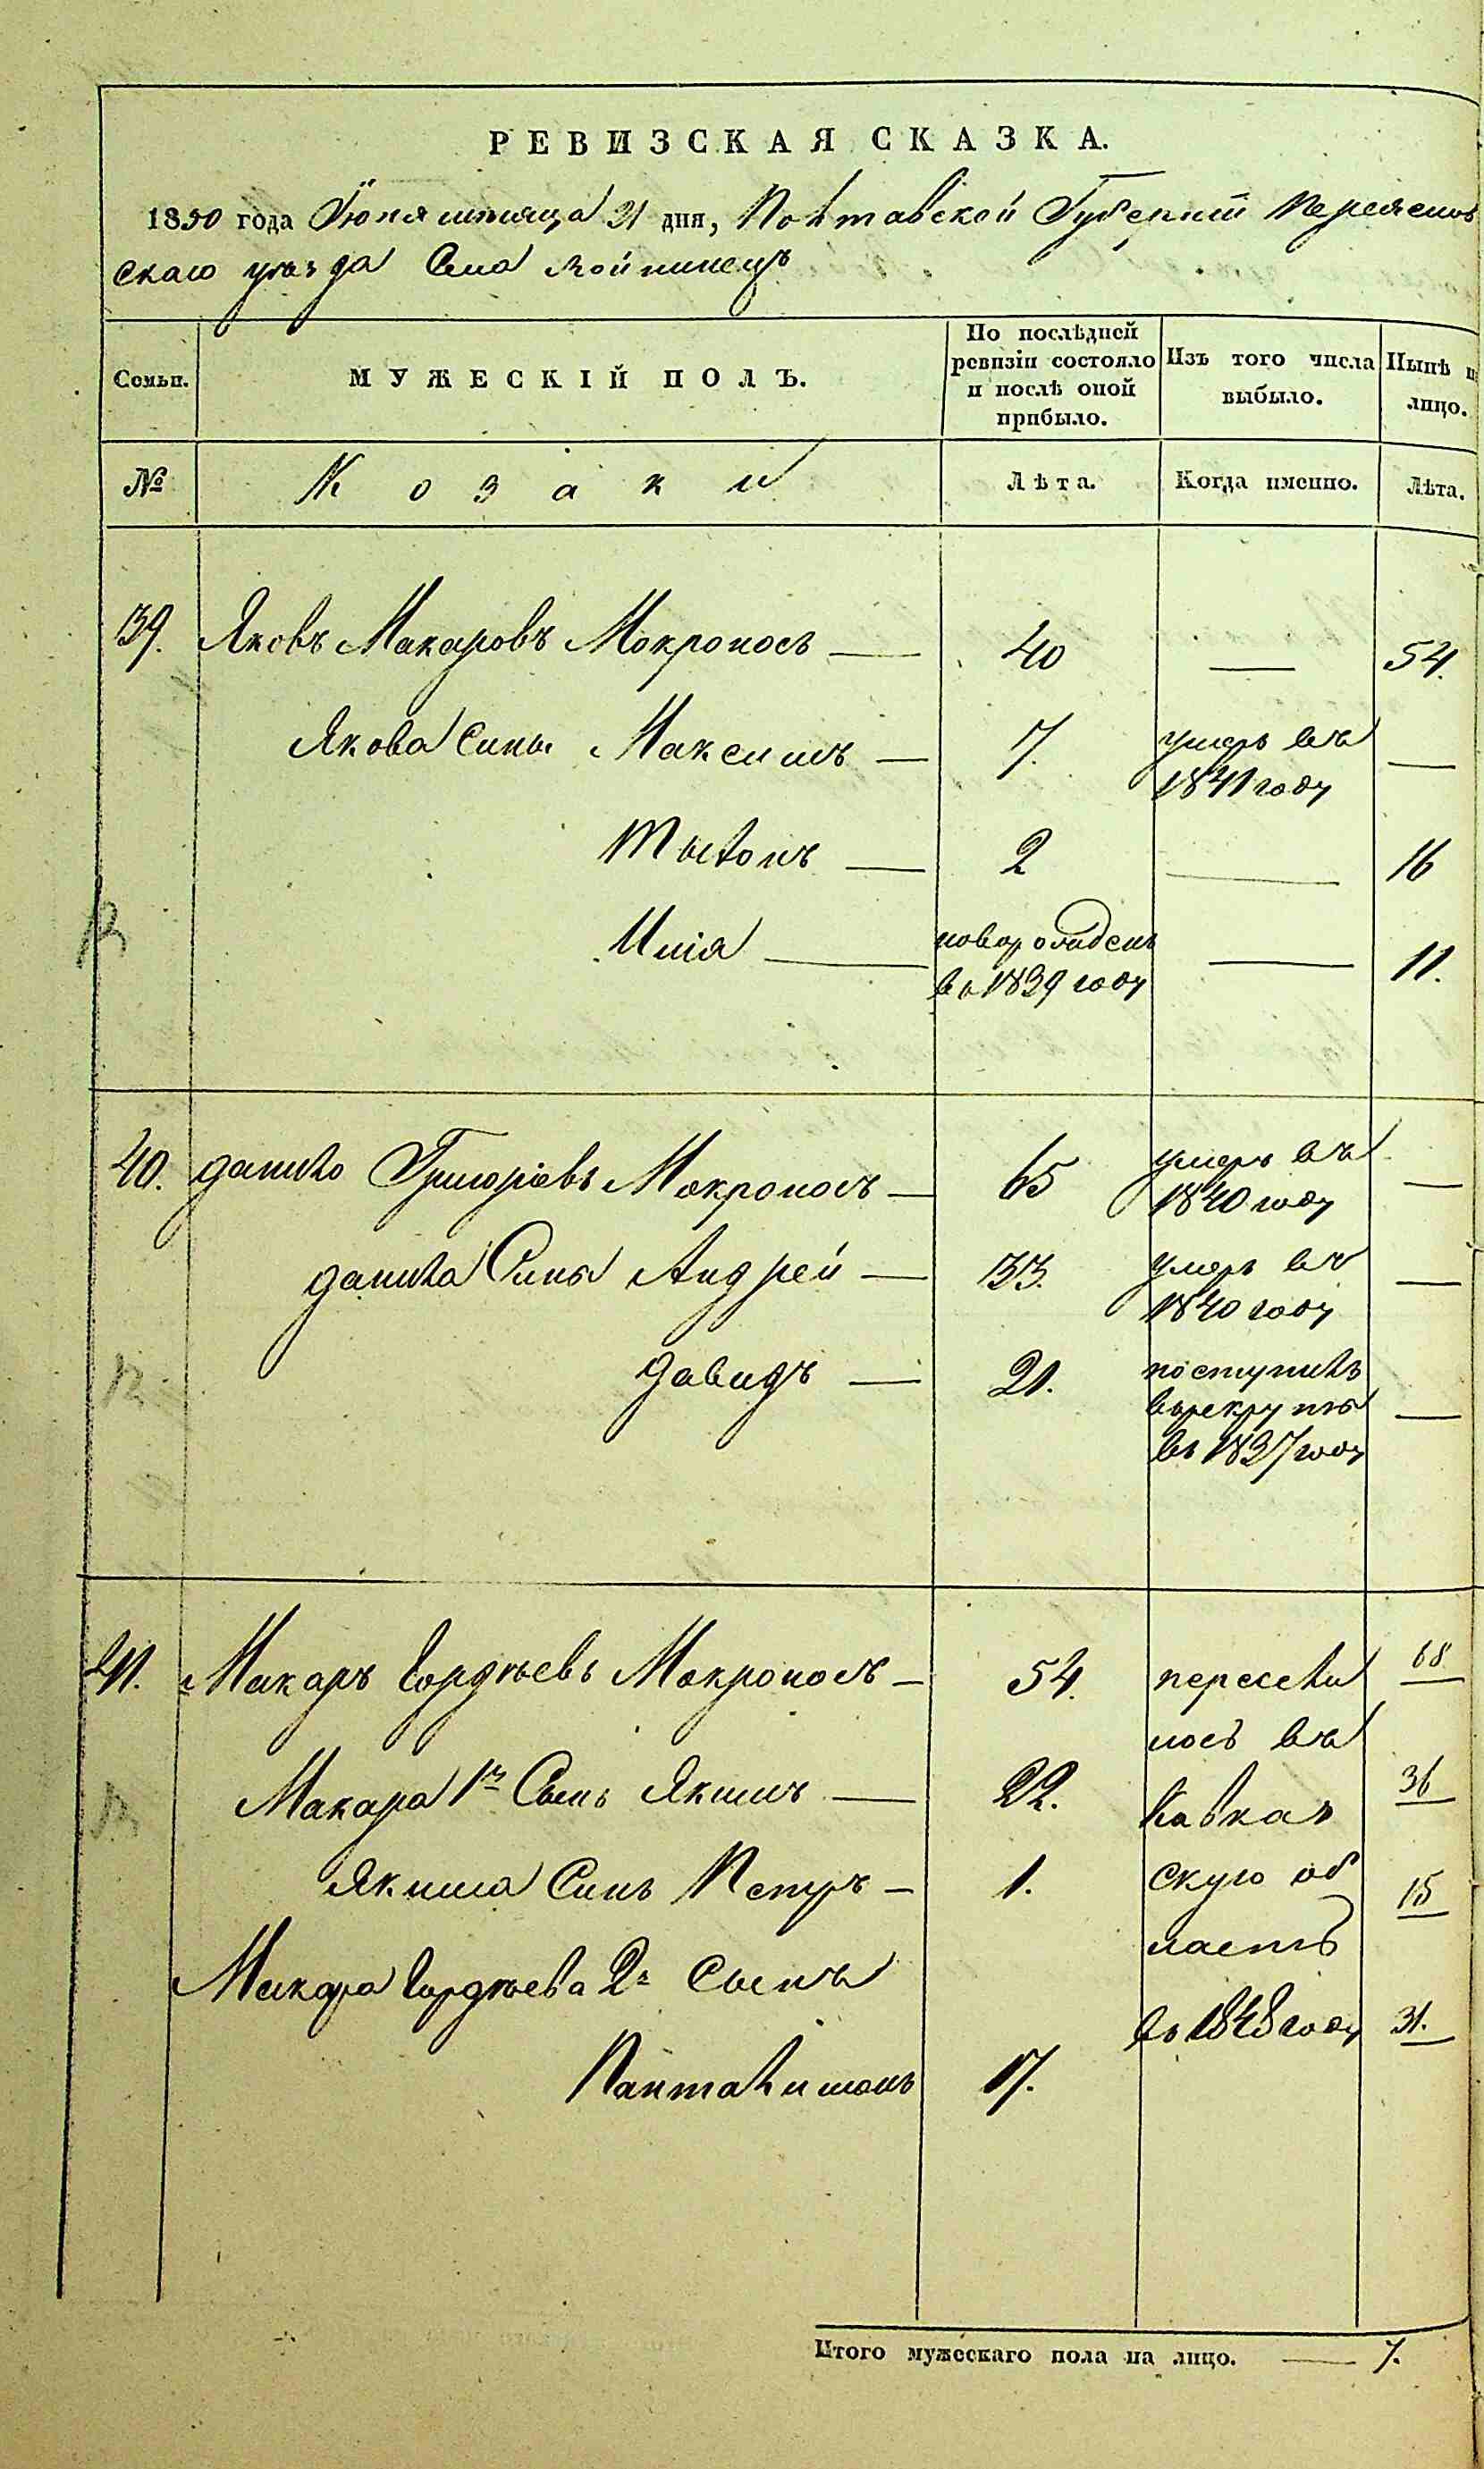 РЕВИЗСКАЯ СКАЗКА.
1850 года Іюня месяца 21 дня, Полтавской Губерніи Переяслов
скаго уѣзда Села Войнинецъ
Семьи. МУЖЕСКІЙ ПОЛЪ. По послѣдней ревизіи состояло и послѣ оной прибыло. Изъ того числа выбыло. Нынѣ на лицо.
№ Козаки Лѣта. Когда именно. Лѣта.
39. Яковъ Макаровъ Мокроносъ — 40 — 54.
Якова Сины Максимъ — 7. умеръ въ 1841 году —
— 2 — 16
Илія — новорожденъ въ 1839 году — 11.
40. Данило Григоріевъ Мокроносъ — 65 умеръ въ 1840 году —
Данила Сины Андрей — 33. умеръ въ 1840 году —
Давидъ — 21. поступилъ въ рекруты въ 1837 году —
41. Макаръ Гордѣевъ Мокроносъ — 54. пересели 68
лись въ
Макара 1й Сынъ Якимъ — 22. Кавказ 36
Якима Синъ Петръ — 1. скую об 15
ласть
Макара Гордѣева 2й Сынъ
въ 1848 году 31.
Панталимонъ 17.
Итого мужескаго пола на лицо. — 7.